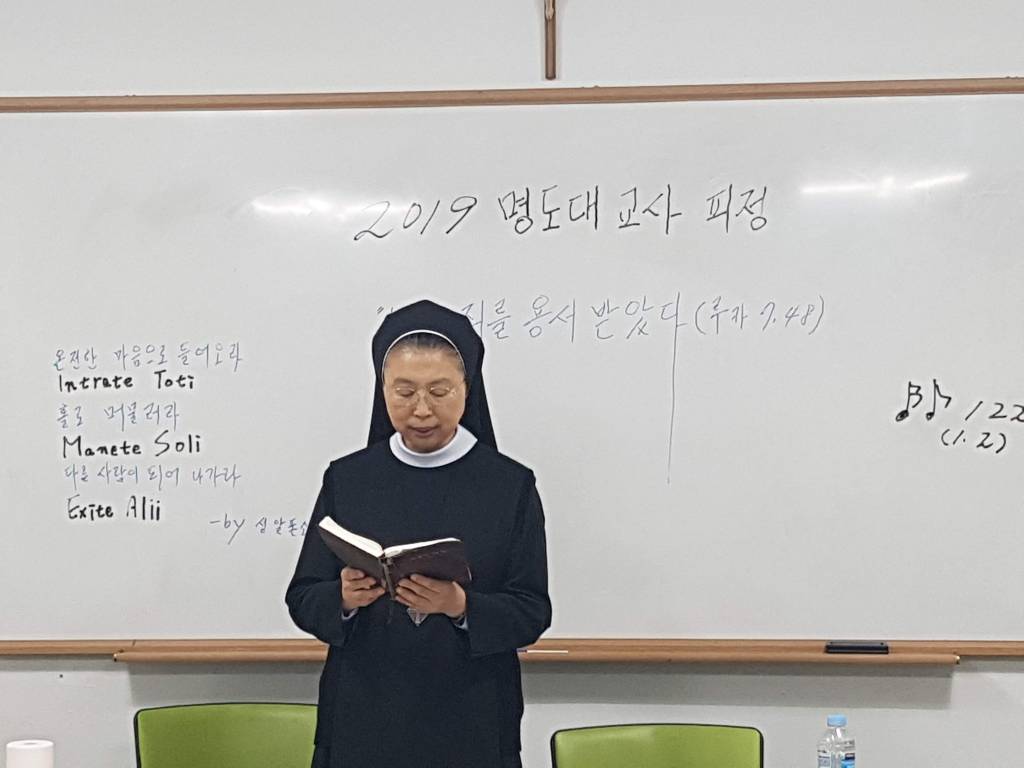 2019 명도대 교사 피정
죄를 용서 받았다 (루카 7.48)
온전한 마음으로 들어오라
Intrate Toti
홀로 머물러라
Manete Soli
다른 사람이 되어 나가라
Exite Alii
-by 성 알폰소
122
(1.2)